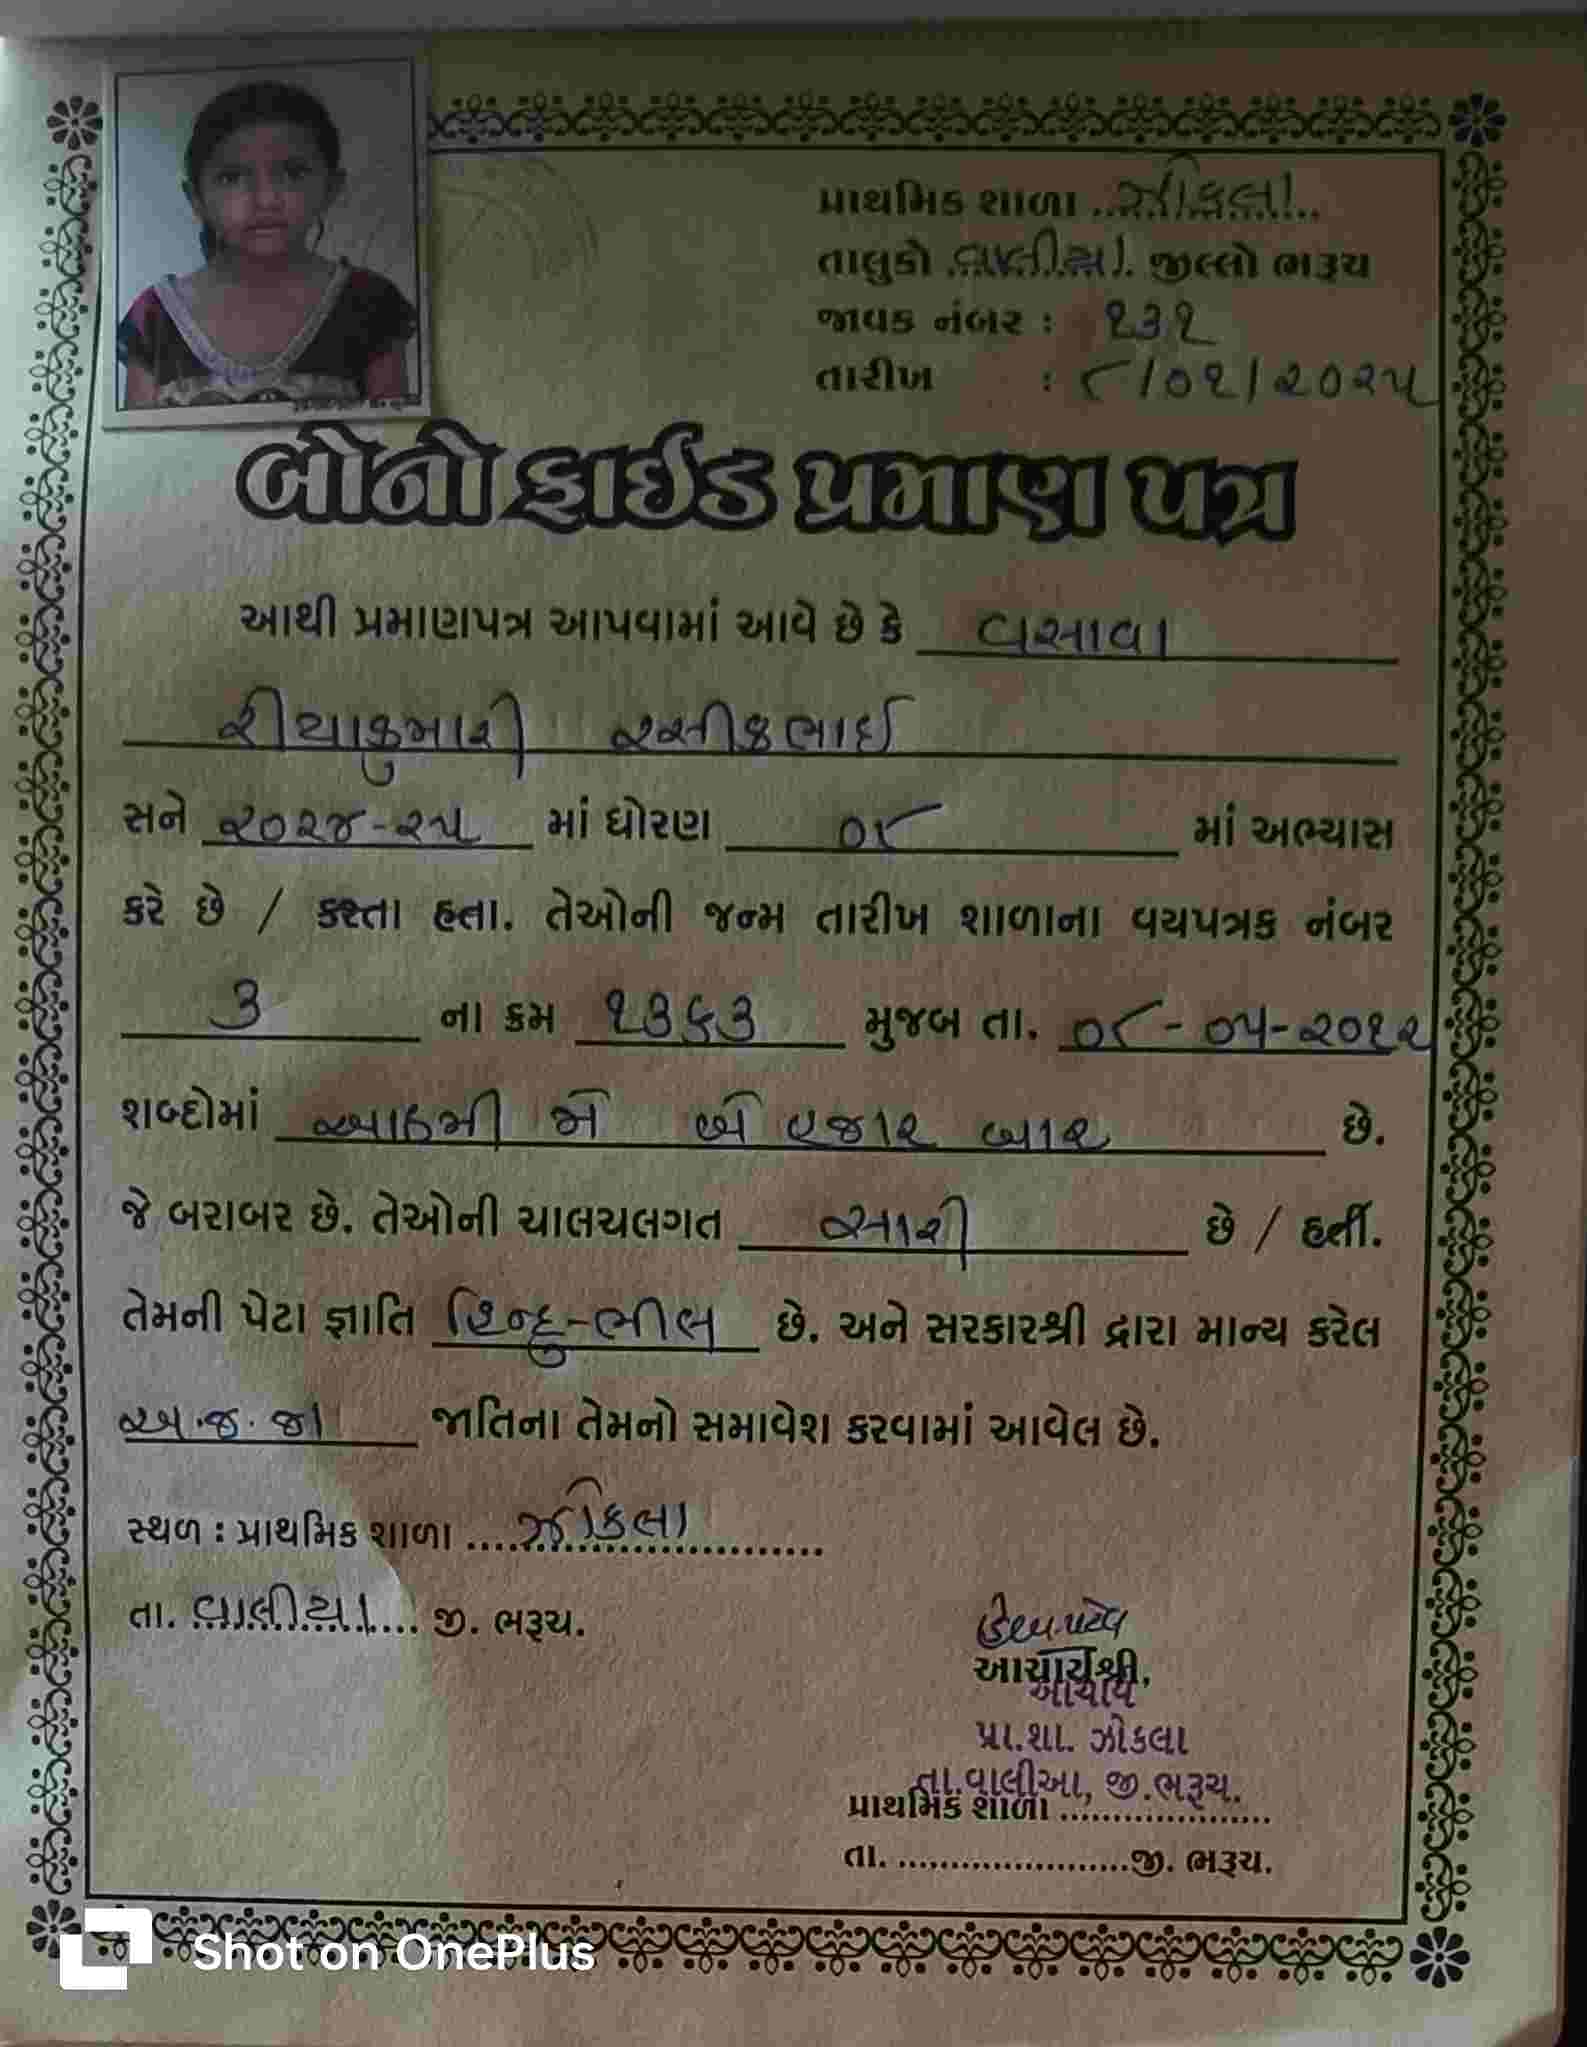 પ્રાથમિક શાળા ઝોકલા
તાલુકો વાલીયા જીલ્લો ભરૂચ
જાવક નંબર : ૧૩૧
તારીખ : ૮/૦૧/૨૦૨૫
બોનોફાઈડ પ્રમાણ પત્ર
આથી પ્રમાણપત્ર આપવામાં આવે છે કે વસાવા
રીયાકુમારી રસીકભાઈ
સને ૨૦૨૪-૨૫ માં ધોરણ ૦૮ માં અભ્યાસ
કરે છે / કરતા હતા. તેઓની જન્મ તારીખ શાળાના વયપત્રક નંબર
૩ ના ક્રમ ૧૩૬૩ મુજબ તા. ૦૮-૦૫-૨૦૧૨
શબ્દોમાં આઠમી મે બે હજાર બાર છે.
જે બરાબર છે. તેઓની ચાલચલગત સારી છે / હતી.
તેમની પેટા જ્ઞાતિ હિન્દુ-ભીલ છે. અને સરકારશ્રી દ્વારા માન્ય કરેલ
અ.જ.જા જાતિના તેમનો સમાવેશ કરવામાં આવેલ છે.
સ્થળ : પ્રાથમિક શાળા ઝોકલા
તા. વાલીયા જી. ભરૂચ.
આચાર્યશ્રી,
આચાર્ય
પ્રા.શા. ઝોકલા
તા.વાલીઆ, જી.ભરૂચ.
પ્રાથમિક શાળા ....................
તા. ......................જી. ભરૂચ.
Shot on OnePlus